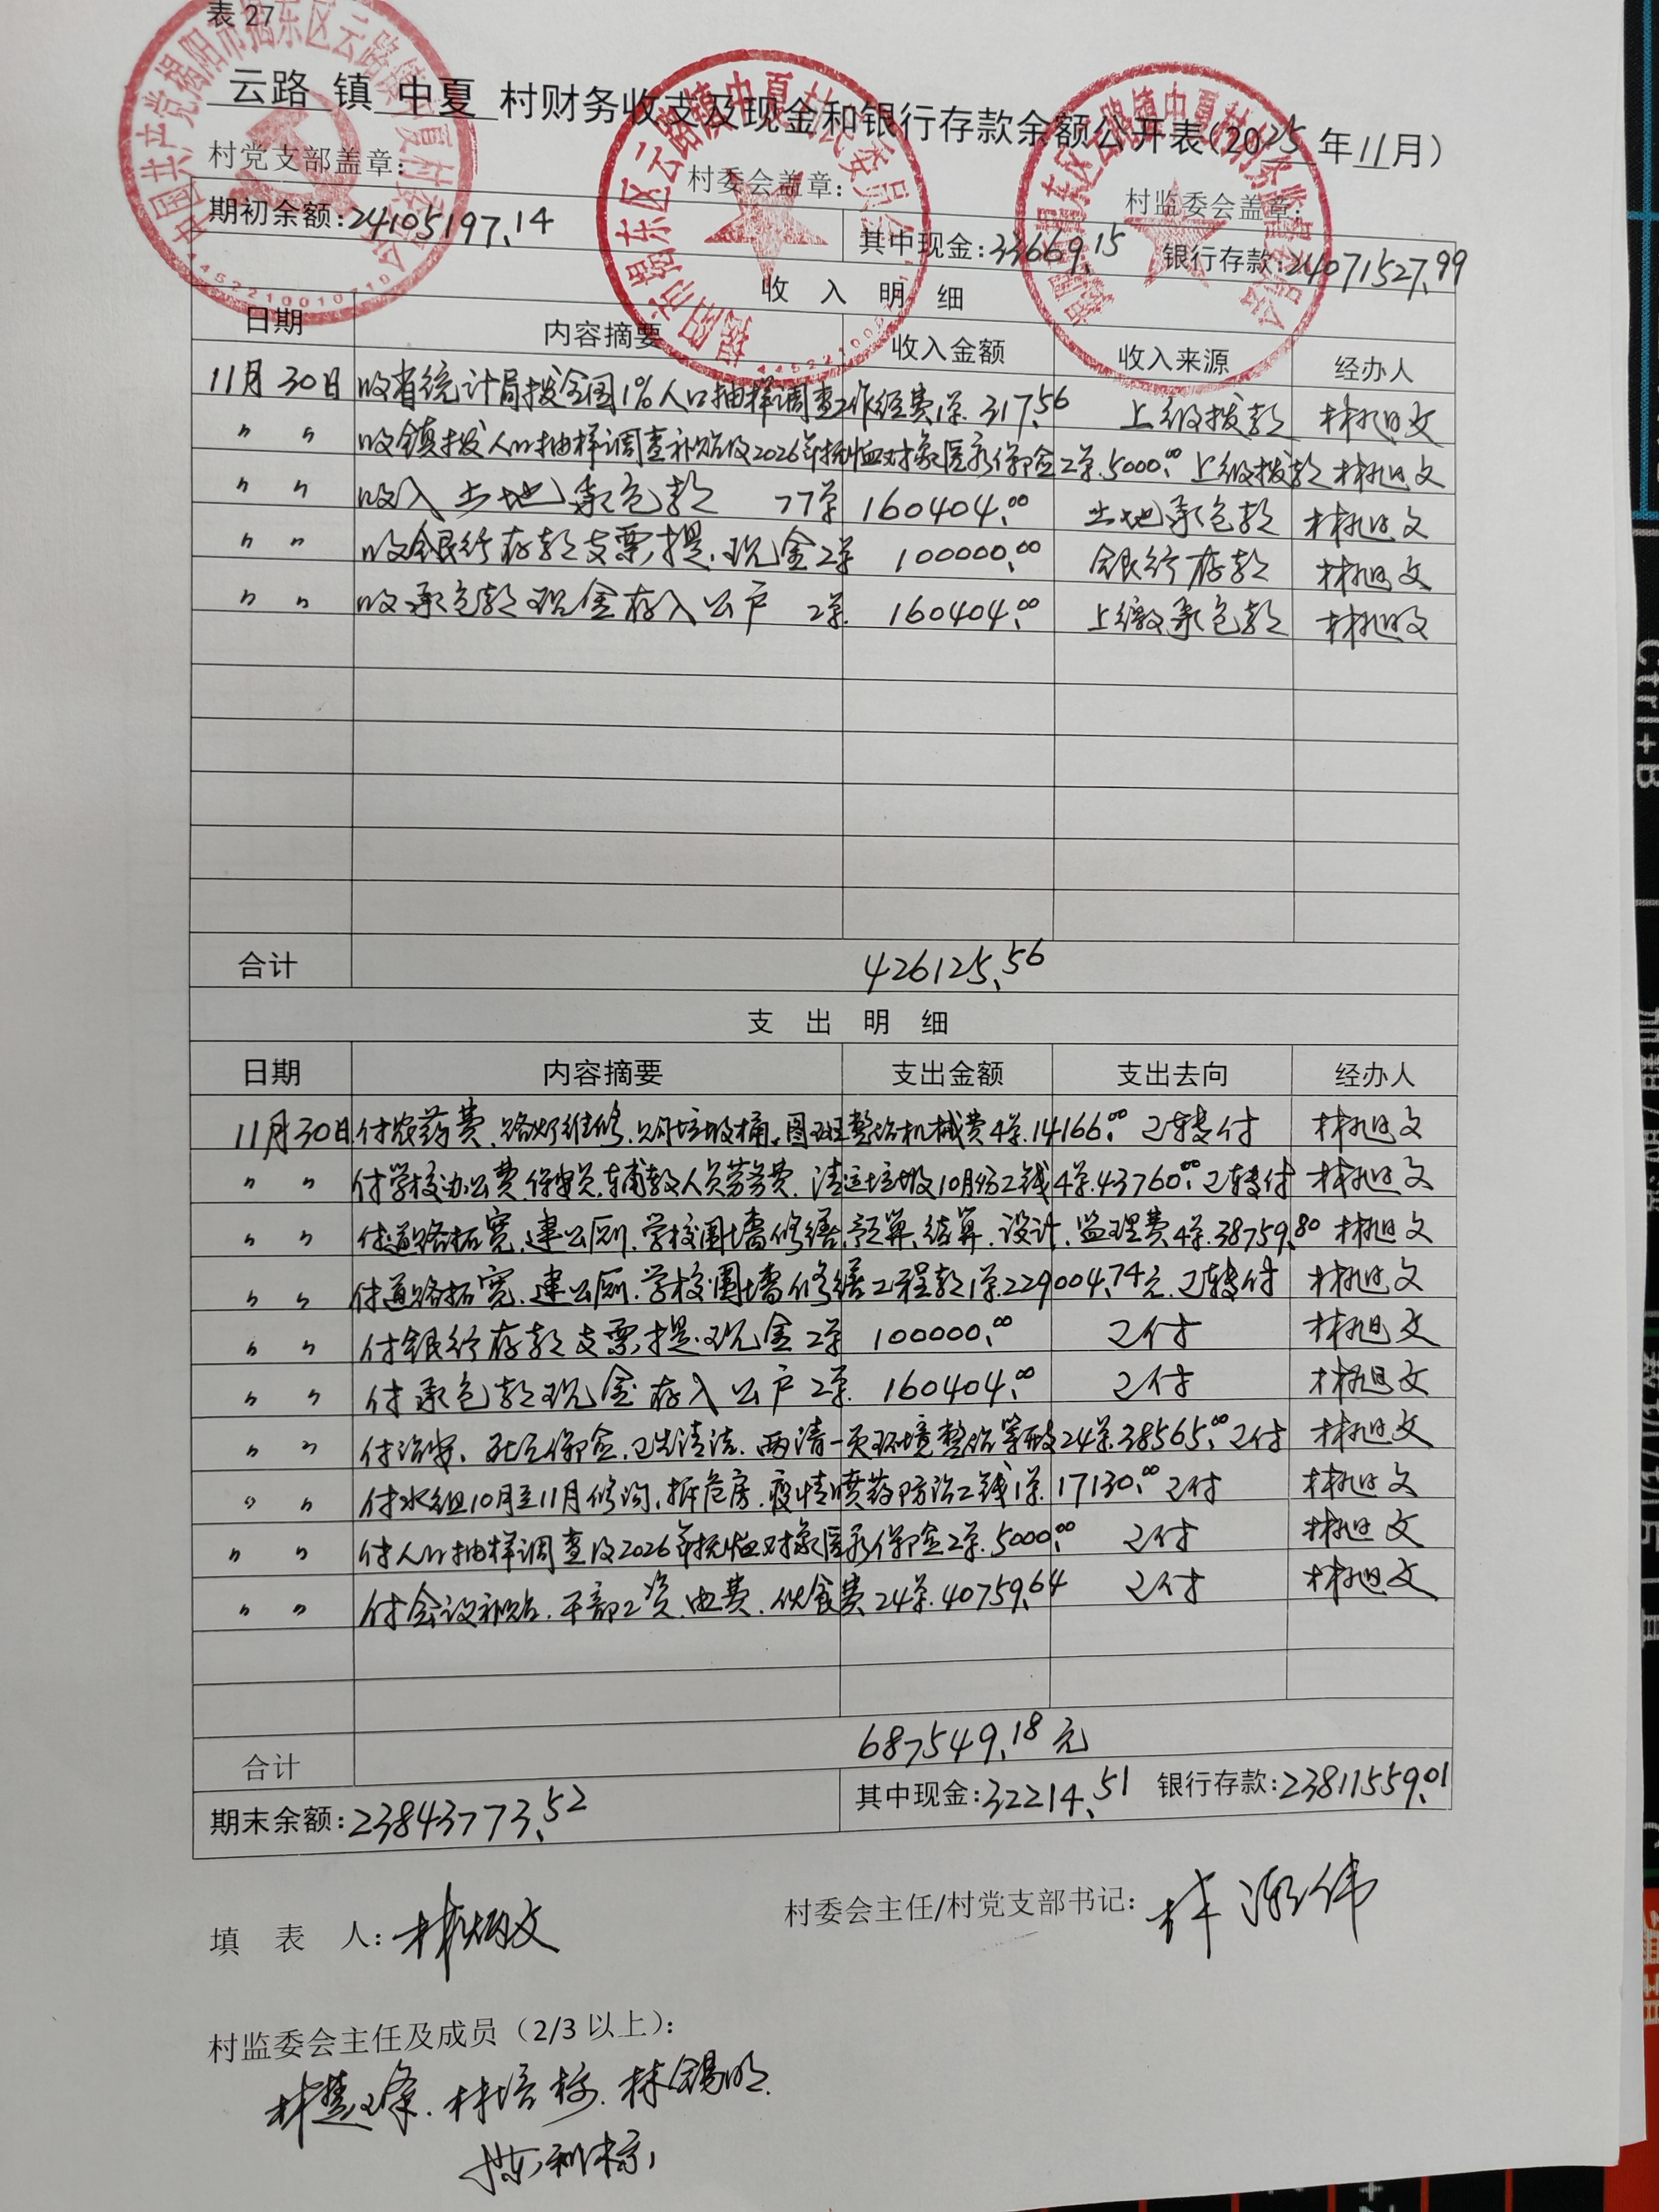 表 27
云路 镇 中夏 村财务收支及现金和银行存款余额公开表(2025年11月)
村党支部盖章: 村委会盖章: 村监委会盖章:
期初余额:24105197.14 其中现金:33669.15 银行存款:24071527.99
收 入 明 细
日期 内容摘要 收入金额 收入来源 经办人
11月30日 收省统计局拨全国1%人口抽样调查工作经费1单. 317.56 上级拨款 林旭文
〃 〃 收镇拨人口抽样调查补贴及2026年抚恤对象医疗保险金2单. 5000.00 上级拨款 林旭文
〃 〃 收入土地承包款 77单 160404.00 土地承包款 林旭文
〃 〃 收银行存款支票,提现金2单 100000.00 银行存款 林旭文
〃 〃 收承包款现金存入公户 2单. 160404.00 上缴承包款 林旭文
合计 426125.56
支 出 明 细
日期 内容摘要 支出金额 支出去向 经办人
11月30日 付农药费.路灯维修.购垃圾桶.图斑整治机械费4单. 14166.00 已转付 林旭文
〃 〃 付学校办公费.保安员.辅教人员劳务费.清运垃圾10月份工钱4单. 43760.00 已转付 林旭文
〃 〃 付道路拓宽.建公厕.学校围墙修缮.预算.结算.设计.监理费4单. 38759.80 林旭文
〃 〃 付道路拓宽.建公厕.学校围墙修缮工程款1单. 229004.74元 已转付 林旭文
〃 〃 付银行存款支票,提现金2单 100000.00 已付 林旭文
〃 〃 付承包款现金存入公户2单. 160404.00 已付 林旭文
〃 〃 付治安、 保金.卫生清洁.两清一 环境整治等 24单. 38565.00 已付 林旭文
〃 〃 付水组10月至11月修沟.拆危房.疫情喷药防治工钱1单. 17130.00 已付 林旭文
〃 〃 付人口抽样调查及2026年抚恤对象医疗保险金2单. 5000.00 已付 林旭文
〃 〃 付会议补贴.干部工资.电费.伙食费24单. 40759.64 已付 林旭文
合计 687549.18元
期末余额:23843773.52 其中现金:32214.51 银行存款:23811559.01
填 表 人:林炳文 村委会主任/村党支部书记:
村监委会主任及成员(2/3以上):